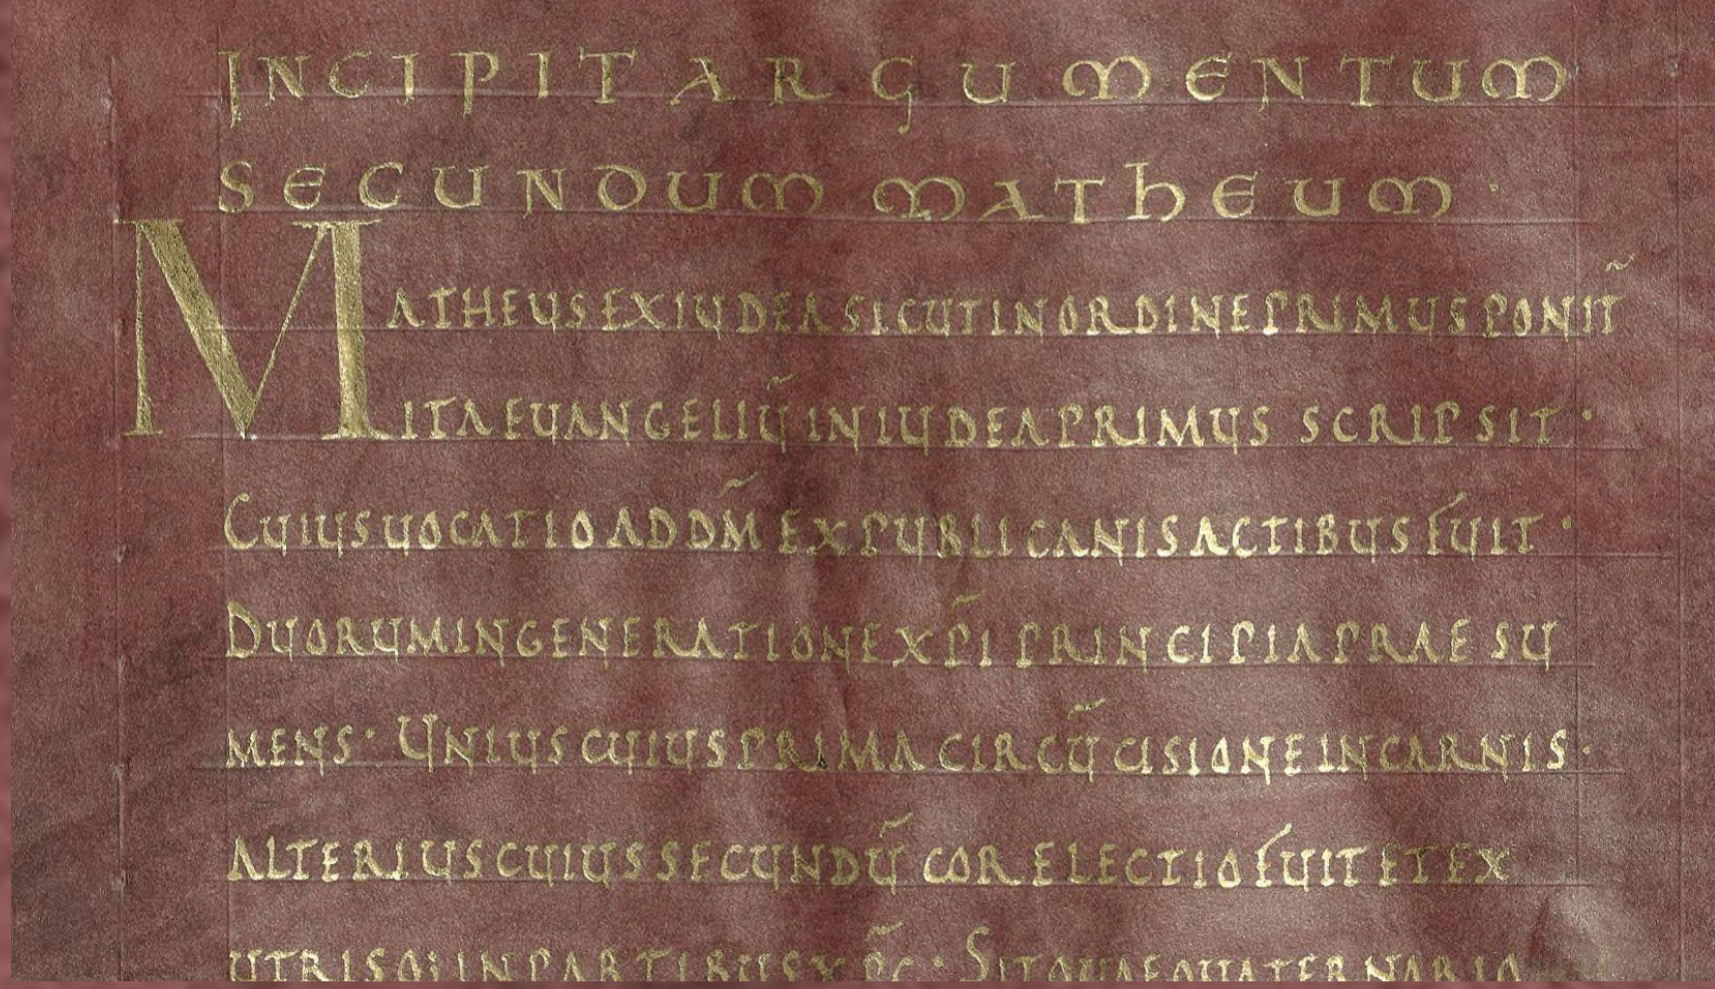 INCIPIT ARGUMENTUM
SECUNDUM MATHEUM ·
MATHEUS EX IUDEA SICUT IN ORDINE PRIMUS PONIT̃
ITA EUANGELIŨ IN IUDEA PRIMUS SCRIPSIT ·
CUIUS UOCATIO AD DM̃ EX PUBLICANIS ACTIBUS FUIT ·
DUORUM IN GENERATIONE XP̃I PRINCIPIA PRAESU
MENS · UNIUS CUIUS PRIMA CIRCŨCISIONE IN CARNIS ·
ALTERIUS CUIUS SECUNDŨ COR ELECTIO FUIT ET EX
UTRISQ; IN PARTIBUS XP̃C · SITQUAE QUATERNARIO